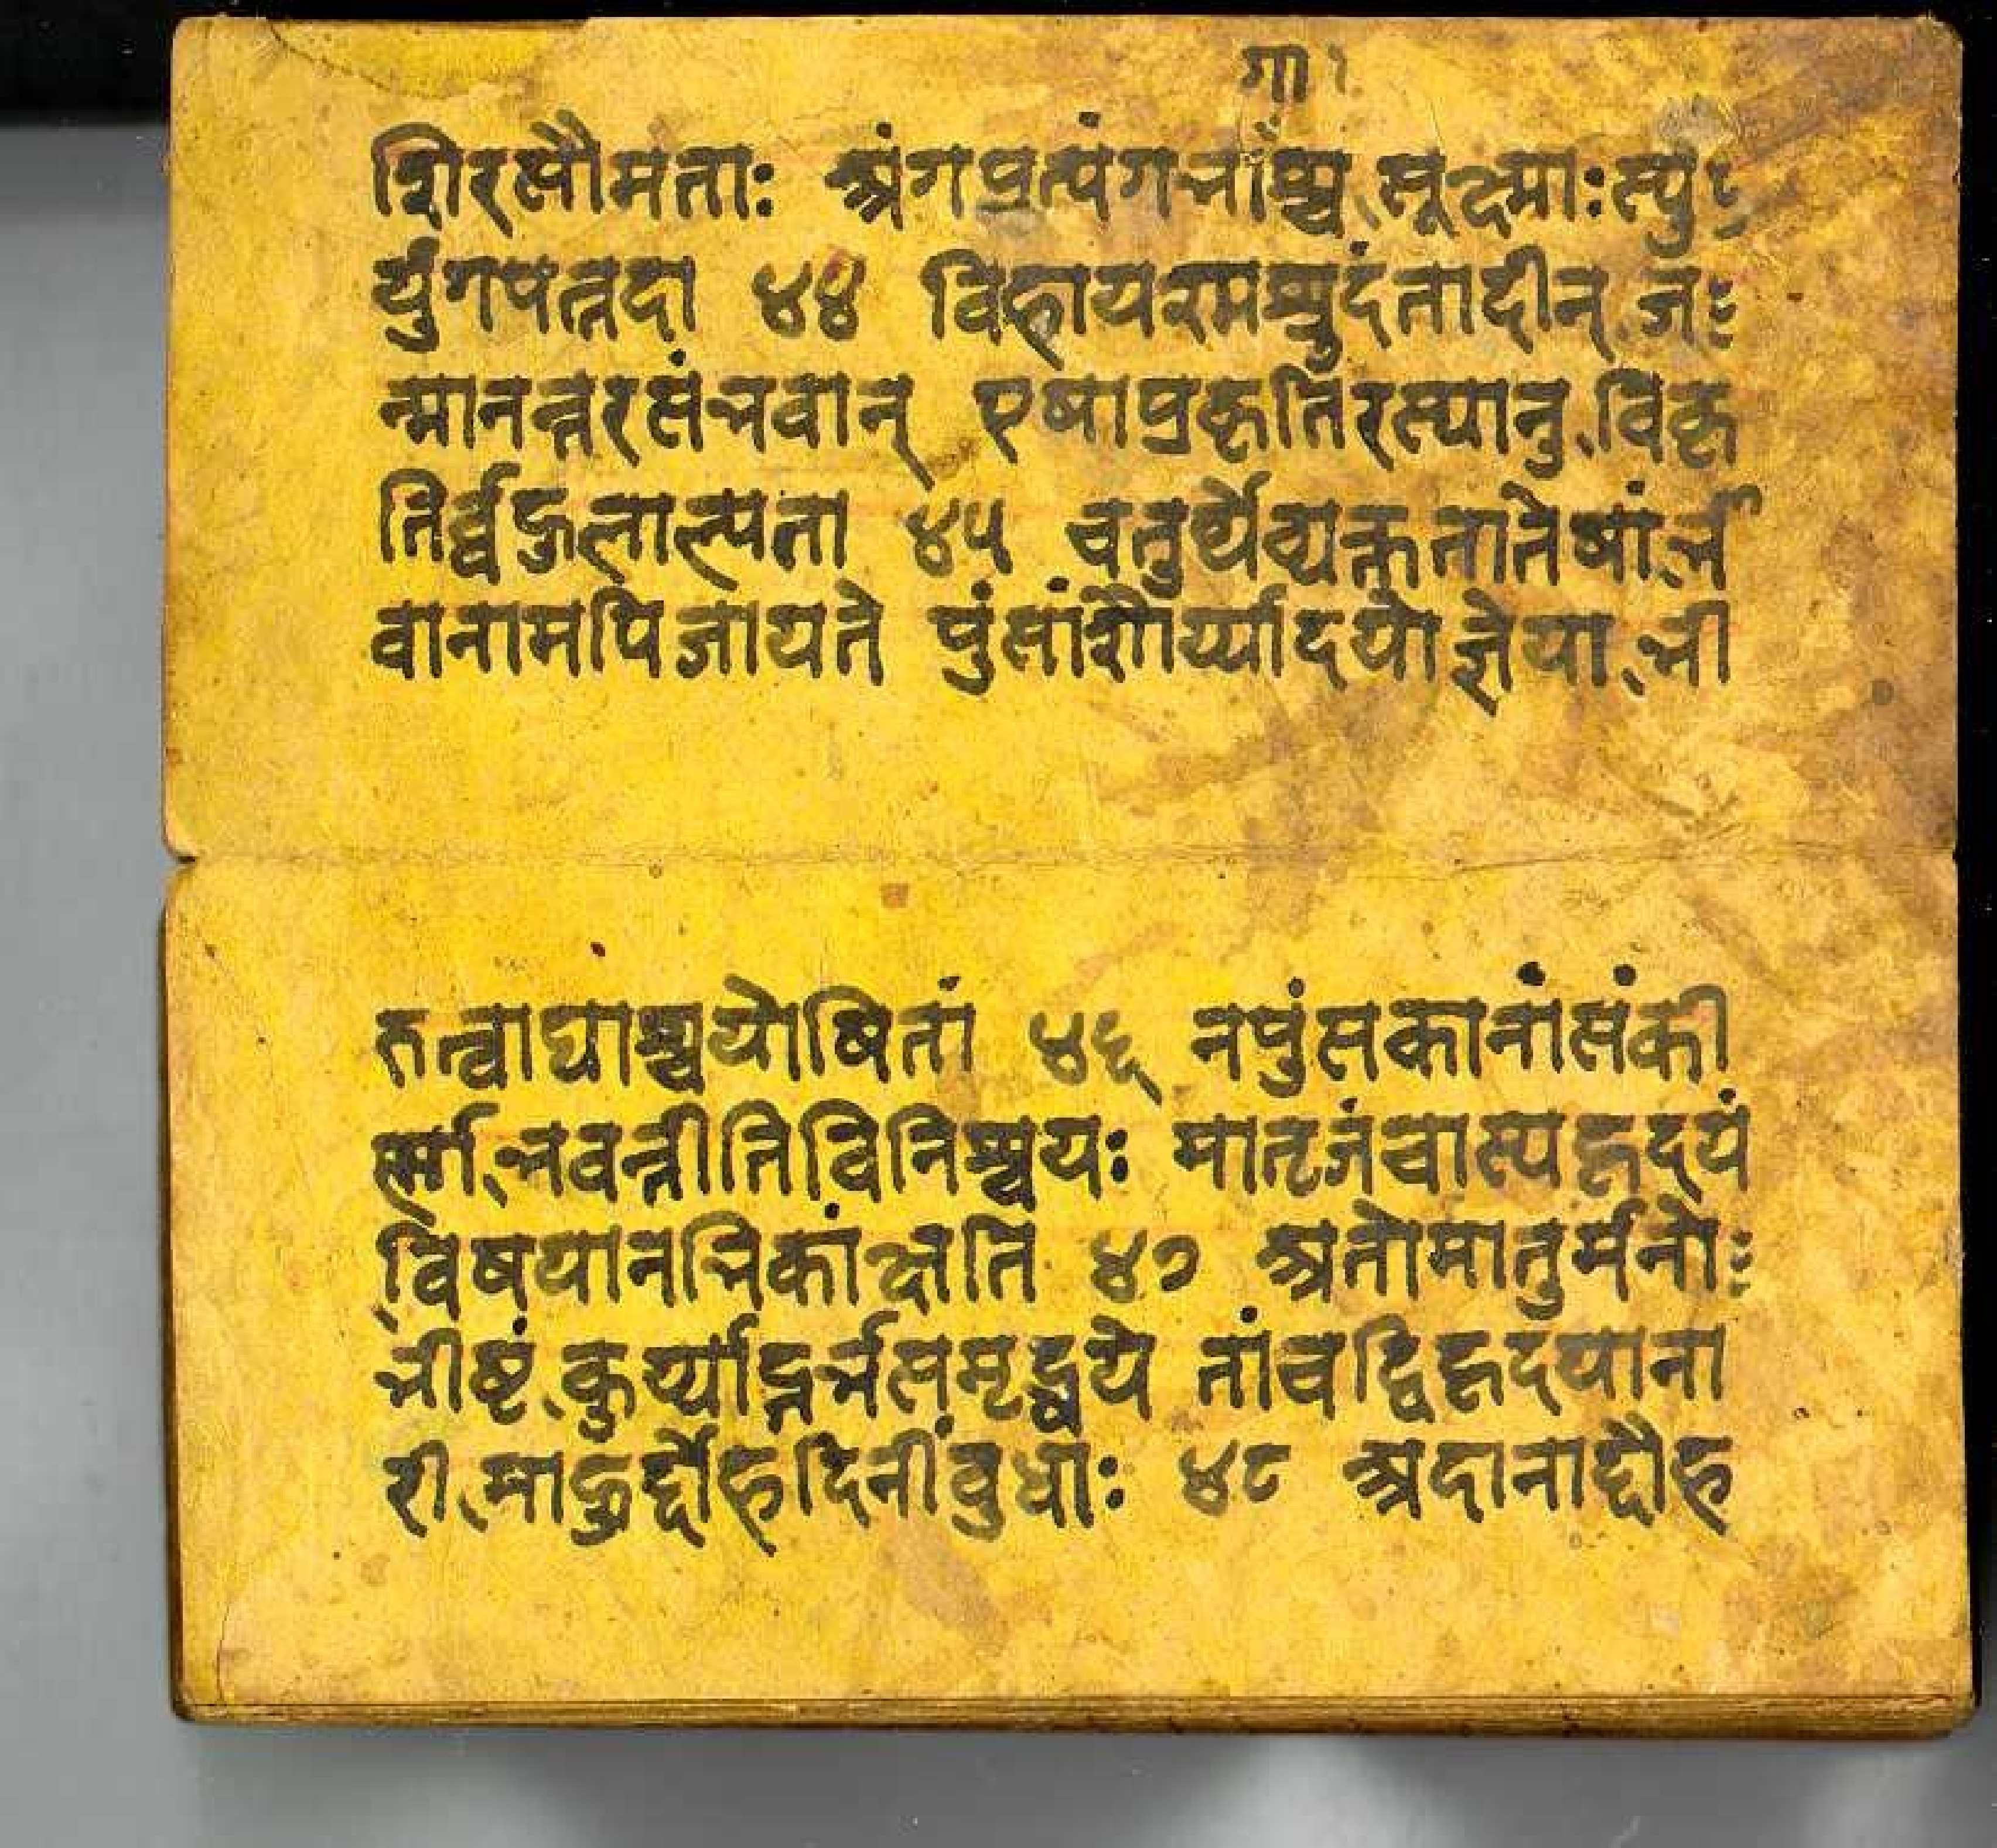 गा १
शिरसौमताः अंगप्रत्यंगभाश्च सूक्ष्माःस्यु
र्युगपत्तदा ४४ विहायश्मश्रुदंतादीन् ज
न्मानन्तरसंभवान् एषाप्रकृतिरस्यानु विकृ
तिर्व्वहुलात्मता ४५ चतुर्थेव्यक्ततातेषांभा
वानामपिजायते पुंसांशौर्य्यादयोज्ञेया भी
रुत्वाद्याश्चयोषितां ४६ नपुंसकानांसंकी
र्स्माभवन्तीतिविनिश्चयः मातृजंवास्यहृदयं
विषयानभिकांक्षति ४७ अतोमातुर्मनो
भीष्टं कुर्य्याद्गर्भसमृद्धये तांवद्विहृदयाना
री माहुर्द्दोहदिनींवुधाः ४८ अदानाद्दौह